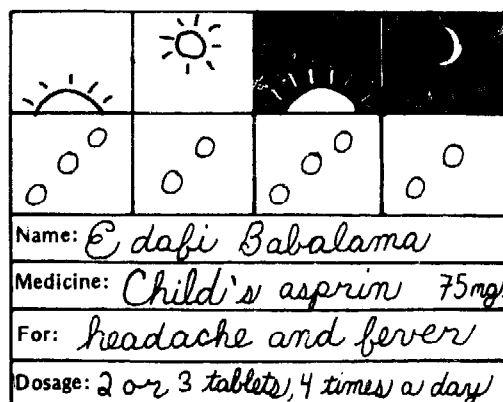 Name: Edafi Babalama
Medicine: Child's asprin 75mg.
For: headache and fever
Dosage: 2 or 3 tablets, 4 times a day